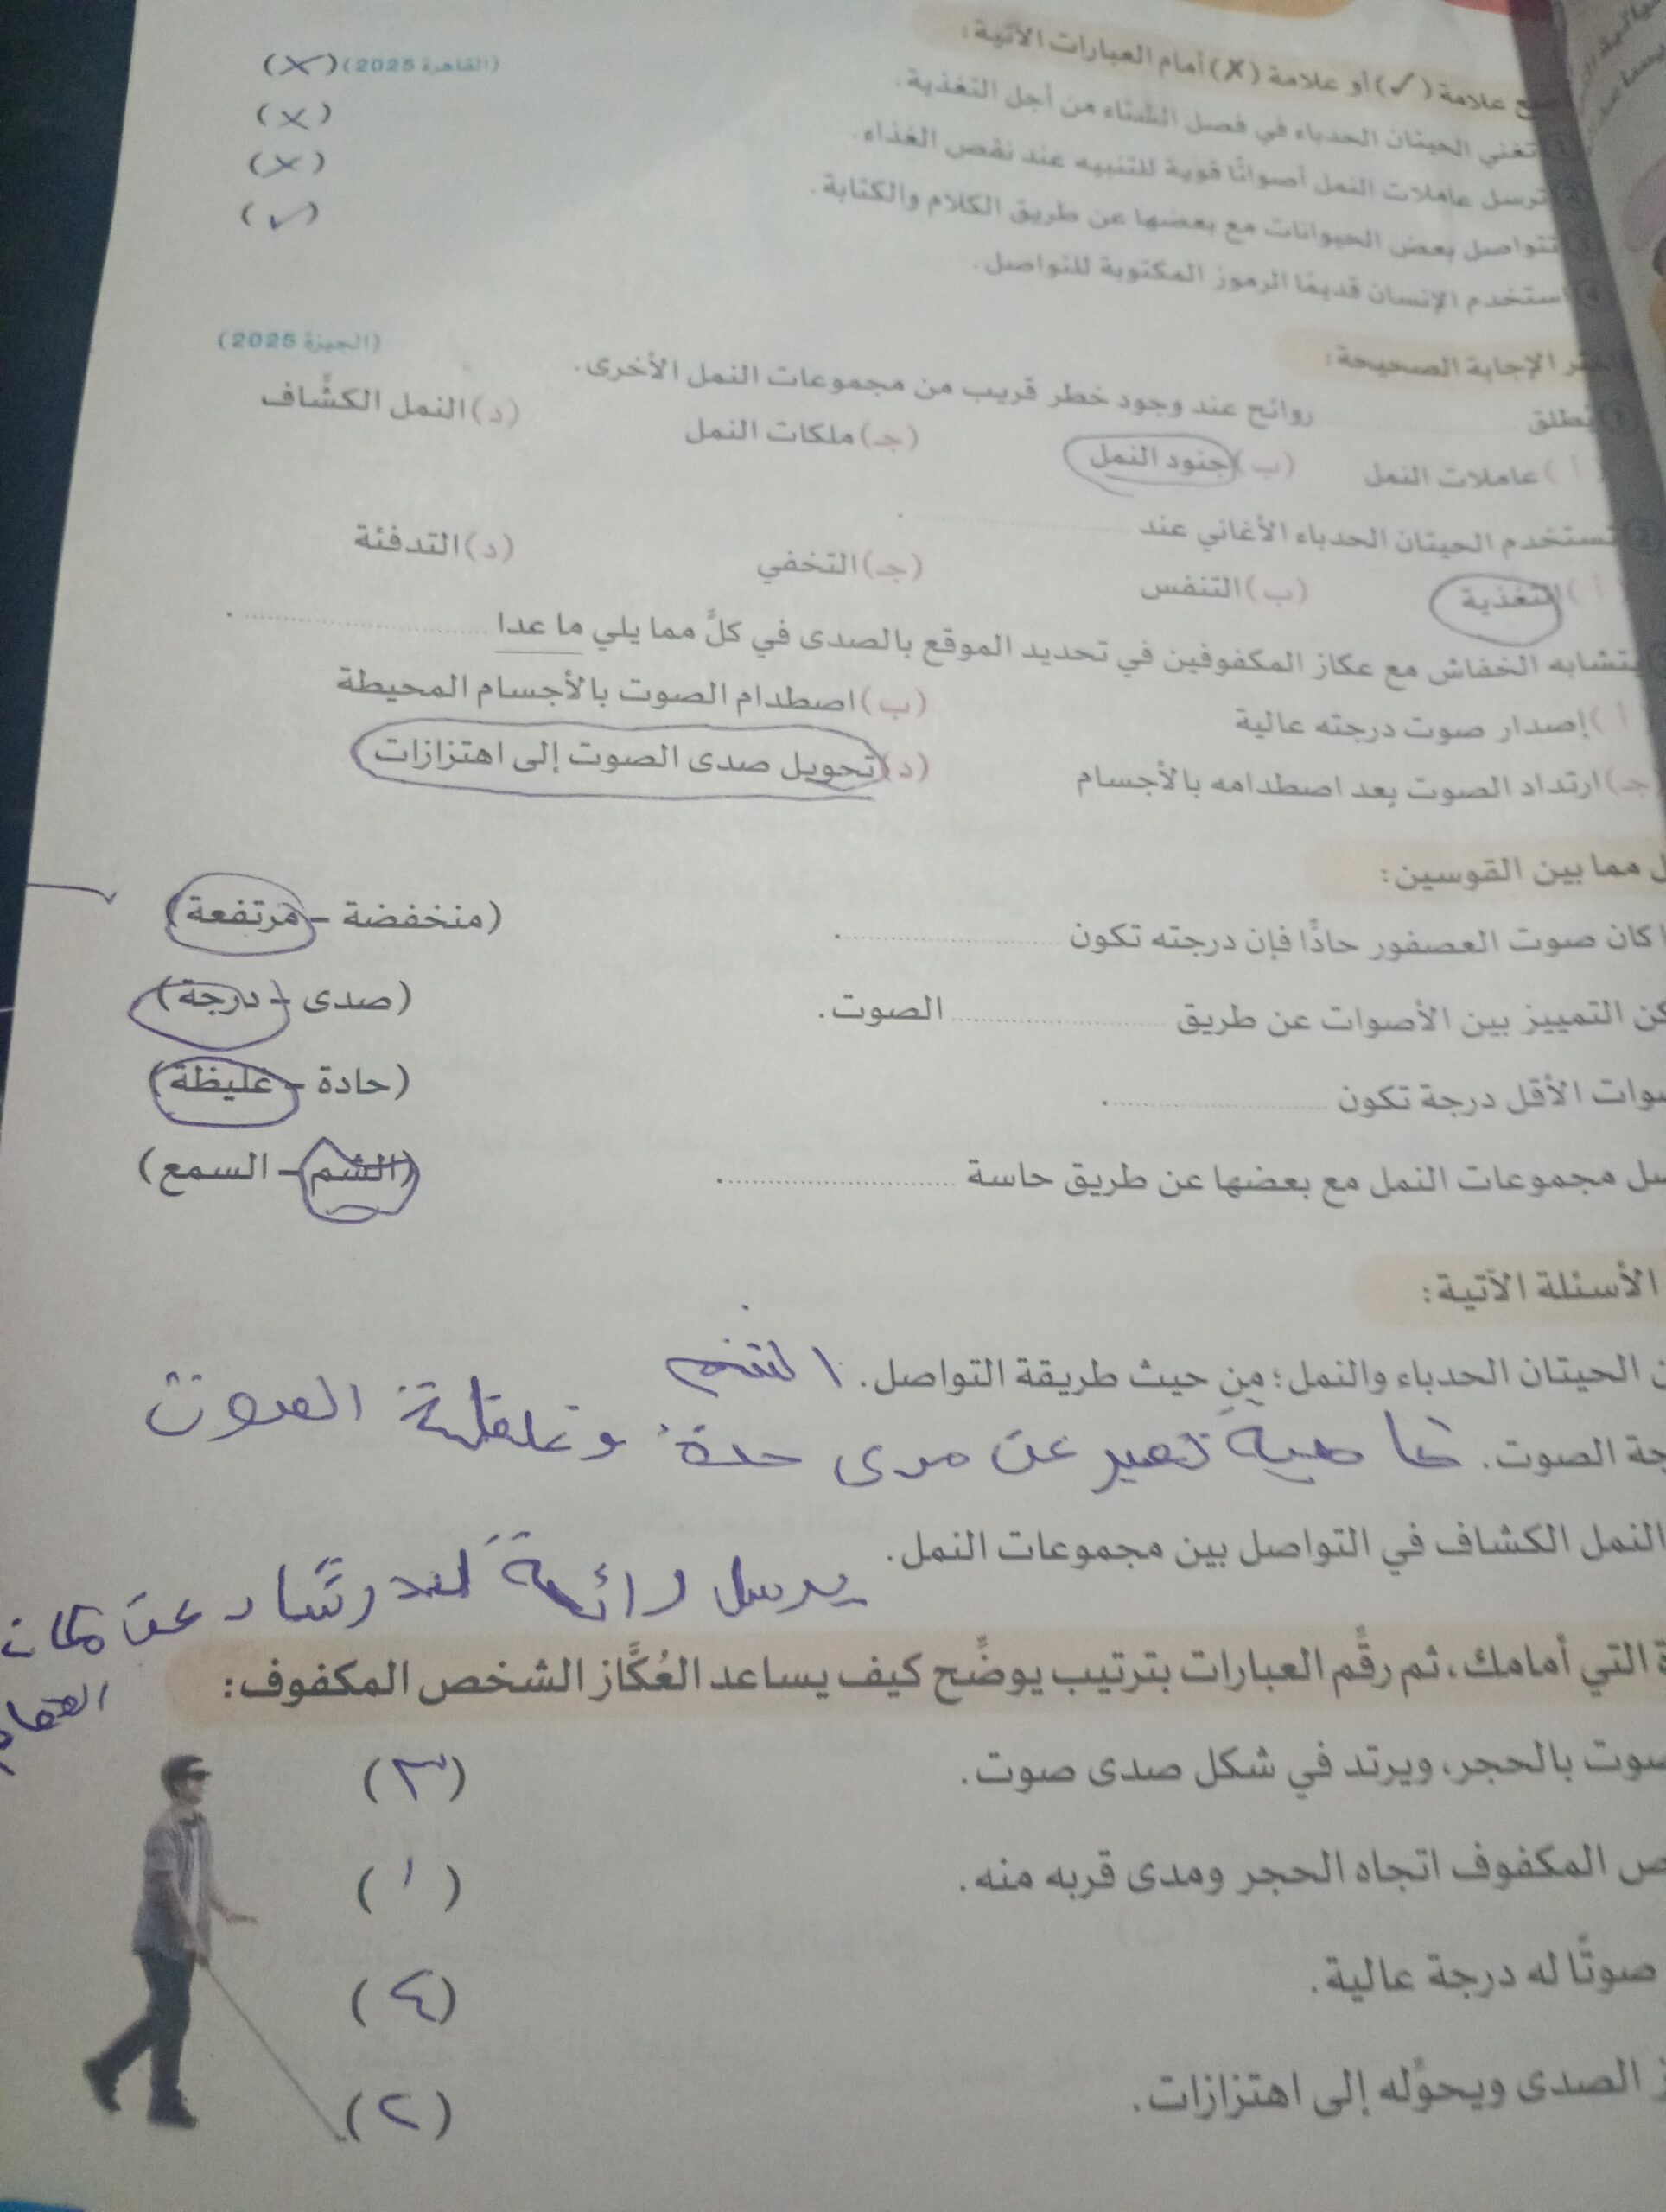 ضع علامة (✓) أو علامة (✗) أمام العبارات الآتية:
1 تغني الحيتان الحدباء في فصل الشتاء من أجل التغذية. (القاهرة 2025) (✗)
2 ترسل عاملات النمل أصواتًا قوية للتنبيه عند نقص الغذاء. (✗)
3 تتواصل بعض الحيوانات مع بعضها عن طريق الكلام والكتابة. (✗)
4 استخدم الإنسان قديمًا الرموز المكتوبة للتواصل. (✓)
اختر الإجابة الصحيحة:
1 تطلق .......... روائح عند وجود خطر قريب من مجموعات النمل الأخرى. (الجيزة 2025)
(أ) عاملات النمل (ب) جنود النمل (جـ) ملكات النمل (د) النمل الكشَّاف
2 تستخدم الحيتان الحدباء الأغاني عند ..........
(أ) التغذية (ب) التنفس (جـ) التخفي (د) التدفئة
يتشابه الخفاش مع عكاز المكفوفين في تحديد الموقع بالصدى في كلٍّ مما يلي ما عدا ..........
(أ) إصدار صوت درجته عالية (ب) اصطدام الصوت بالأجسام المحيطة
(جـ) ارتداد الصوت بعد اصطدامه بالأجسام (د) تحويل صدى الصوت إلى اهتزازات
مما بين القوسين:
كان صوت العصفور حادًّا فإن درجته تكون .......... (منخفضة - مرتفعة)
التمييز بين الأصوات عن طريق .......... الصوت. (صدى - درجة)
الأقل درجة تكون .......... (حادة - غليظة)
مجموعات النمل مع بعضها عن طريق حاسة .......... (الشم - السمع)
الأسئلة الآتية:
الحيتان الحدباء والنمل؛ من حيث طريقة التواصل.
الصوت. خاصية تعبر عن مدى حدة وغلظة الصوت
النمل الكشاف في التواصل بين مجموعات النمل.
يرسل رائحة للارشاد عن مكان
الطعام
التي أمامك، ثم رقِّم العبارات بترتيب يوضِّح كيف يساعد العُكَّاز الشخص المكفوف:
بالحجر، ويرتد في شكل صدى صوت. (٣)
المكفوف اتجاه الحجر ومدى قربه منه. (١)
صوتًا له درجة عالية. (٤)
الصدى ويحوِّله إلى اهتزازات. (٢)